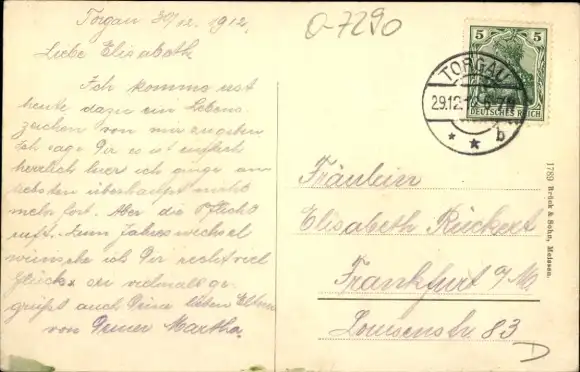 Torgau 30/12. 1912.
Liebe Elisabeth
Ich komme erst
heute dazu ein Lebens
zeichen von mir zugeben
Ich sage Dir es ist einfach
herrlich hier ich ginge am
liebsten überhaupt nicht
mehr fort. Aber die Pflicht
ruft. Zum Jahreswechsel
wünsche ich Dir recht viel
Glück. Sei vielmals ge-
grüßt auch Deine lieben Eltern
von Deiner Martha.
0-7290
5 5
DEUTSCHES REICH
TORGAU
29.12.12 6-7N
* * b
Fräulein
Elisabeth Rückert
Frankfurt a/M
Louisenstr. 83
D
1789 Brück & Sohn, Meissen.